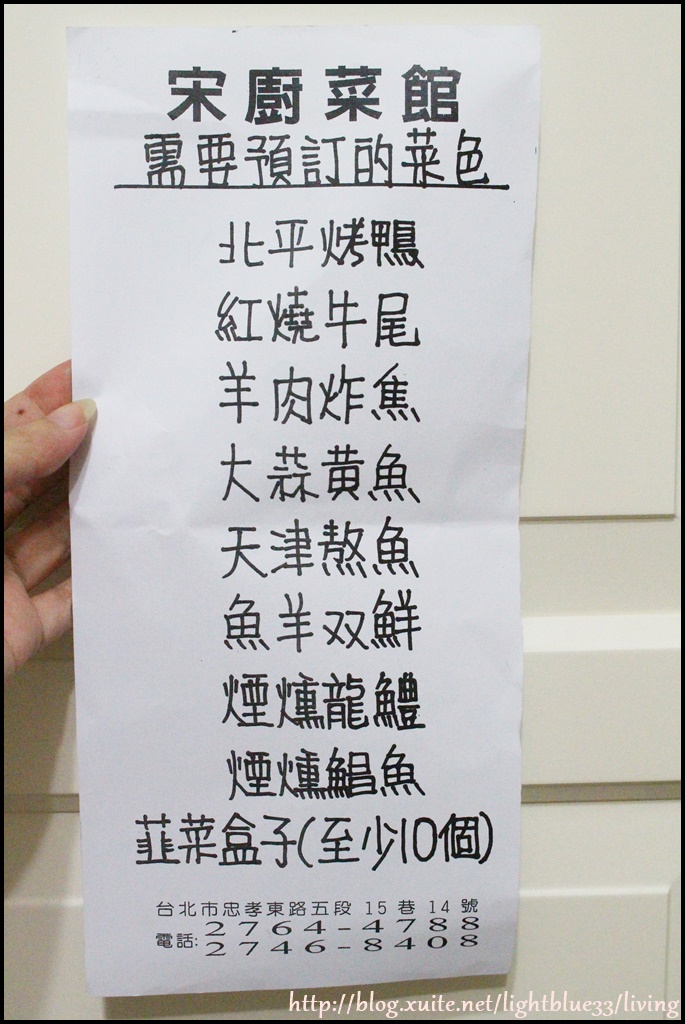 宋廚菜館
需要預訂的菜色
北平烤鴨
紅燒牛尾
羊肉炸焦
大蒜黃魚
天津熬魚
魚羊双鮮
煙燻龍鱧
煙燻鯧魚
韮菜盒子(至少10個)
台北市忠孝東路五段 15 巷 14 號
電話: 2764-4788
2746-8408
http://blog.xuite.net/lightblue33/living